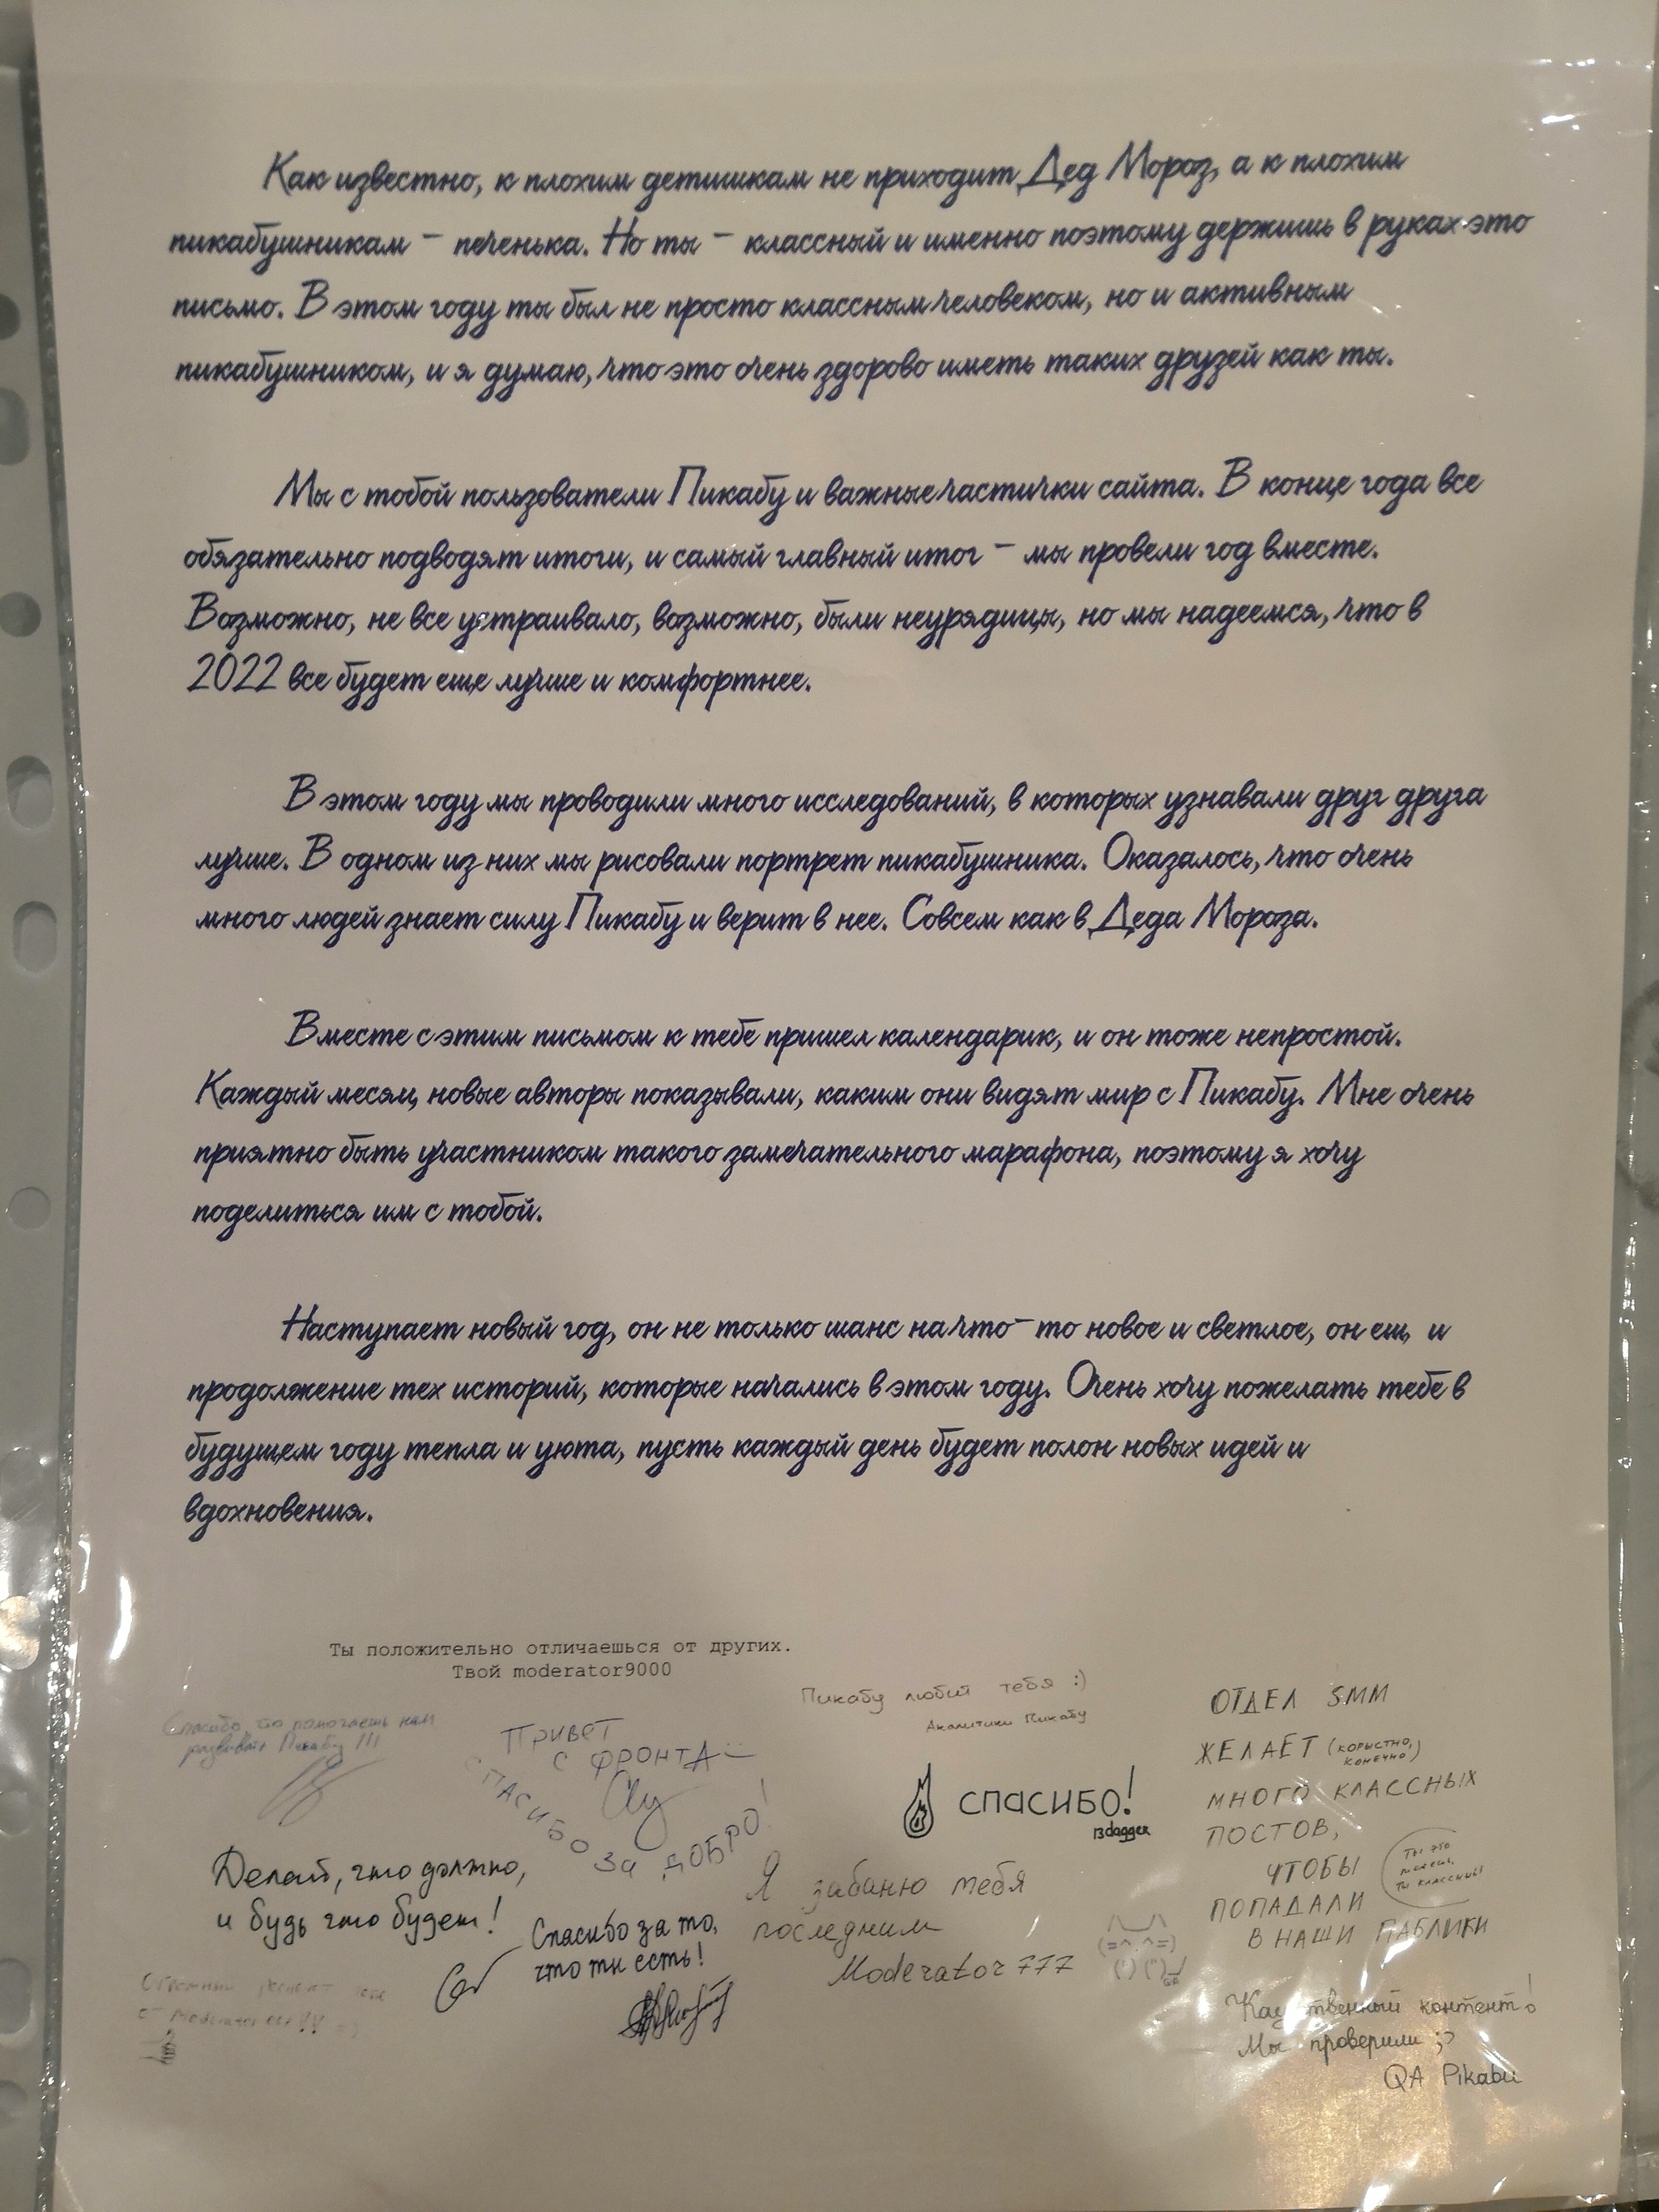 Как известно, к плохим детишкам не приходит Дед Мороз, а к плохим
пикабушникам – печенька. Но ты – классный и именно поэтому держишь в руках это
письмо. В этом году ты был не просто классным человеком, но и активным
пикабушником, и я думаю, что это очень здорово иметь таких друзей как ты.
Мы с тобой пользователи Пикабу и важные частички сайта. В конце года все
обязательно подводят итоги, и самый главный итог – мы провели год вместе.
Возможно, не все устраивало, возможно, были неурядицы, но мы надеемся, что в
2022 все будет еще лучше и комфортнее.
В этом году мы проводили много исследований, в которых узнавали друг друга
лучше. В одном из них мы рисовали портрет пикабушника. Оказалось, что очень
много людей знает силу Пикабу и верит в нее. Совсем как в Деда Мороза.
Вместе с этим письмом к тебе пришел календарик, и он тоже непростой.
Каждый месяц новые авторы показывали, каким они видят мир с Пикабу. Мне очень
приятно быть участником такого замечательного марафона, поэтому я хочу
поделиться им с тобой.
Наступает новый год, он не только шанс на что-то новое и светлое, он ещ и
продолжение тех историй, которые начались в этом году. Очень хочу пожелать тебе в
будущем году тепла и уюта, пусть каждый день будет полон новых идей и
вдохновения.
Ты положительно отличаешься от других.
Твой moderator9000
Спасибо, что помогаешь нам
развивать Пикабу !!!
ПРИВЕТ
С ФРОНТА
СПАСИБО ЗА ДОБРО!
Пикабу любит тебя :)
Аналитики Пикабу
спасибо!
13dagger
Делай, что должно,
и будь что будет!
Спасибо за то,
что ты есть!
Я забаню тебя
последним
Moderator 777
(=^.^=)
(") (")
ОТДЕЛ SMM
ЖЕЛАЕТ (КОРЫСТНО, КОНЕЧНО)
МНОГО КЛАССНЫХ
ПОСТОВ,
ЧТОБЫ
ПОПАДАЛИ
В НАШИ ПАБЛИКИ
ТЫ ЭТО
МОЖЕШЬ,
ТЫ КЛАССНЫЙ
Огромный респект тебе
от moderator
Качественный контент!
Мы проверили ;)
QA Pikabu